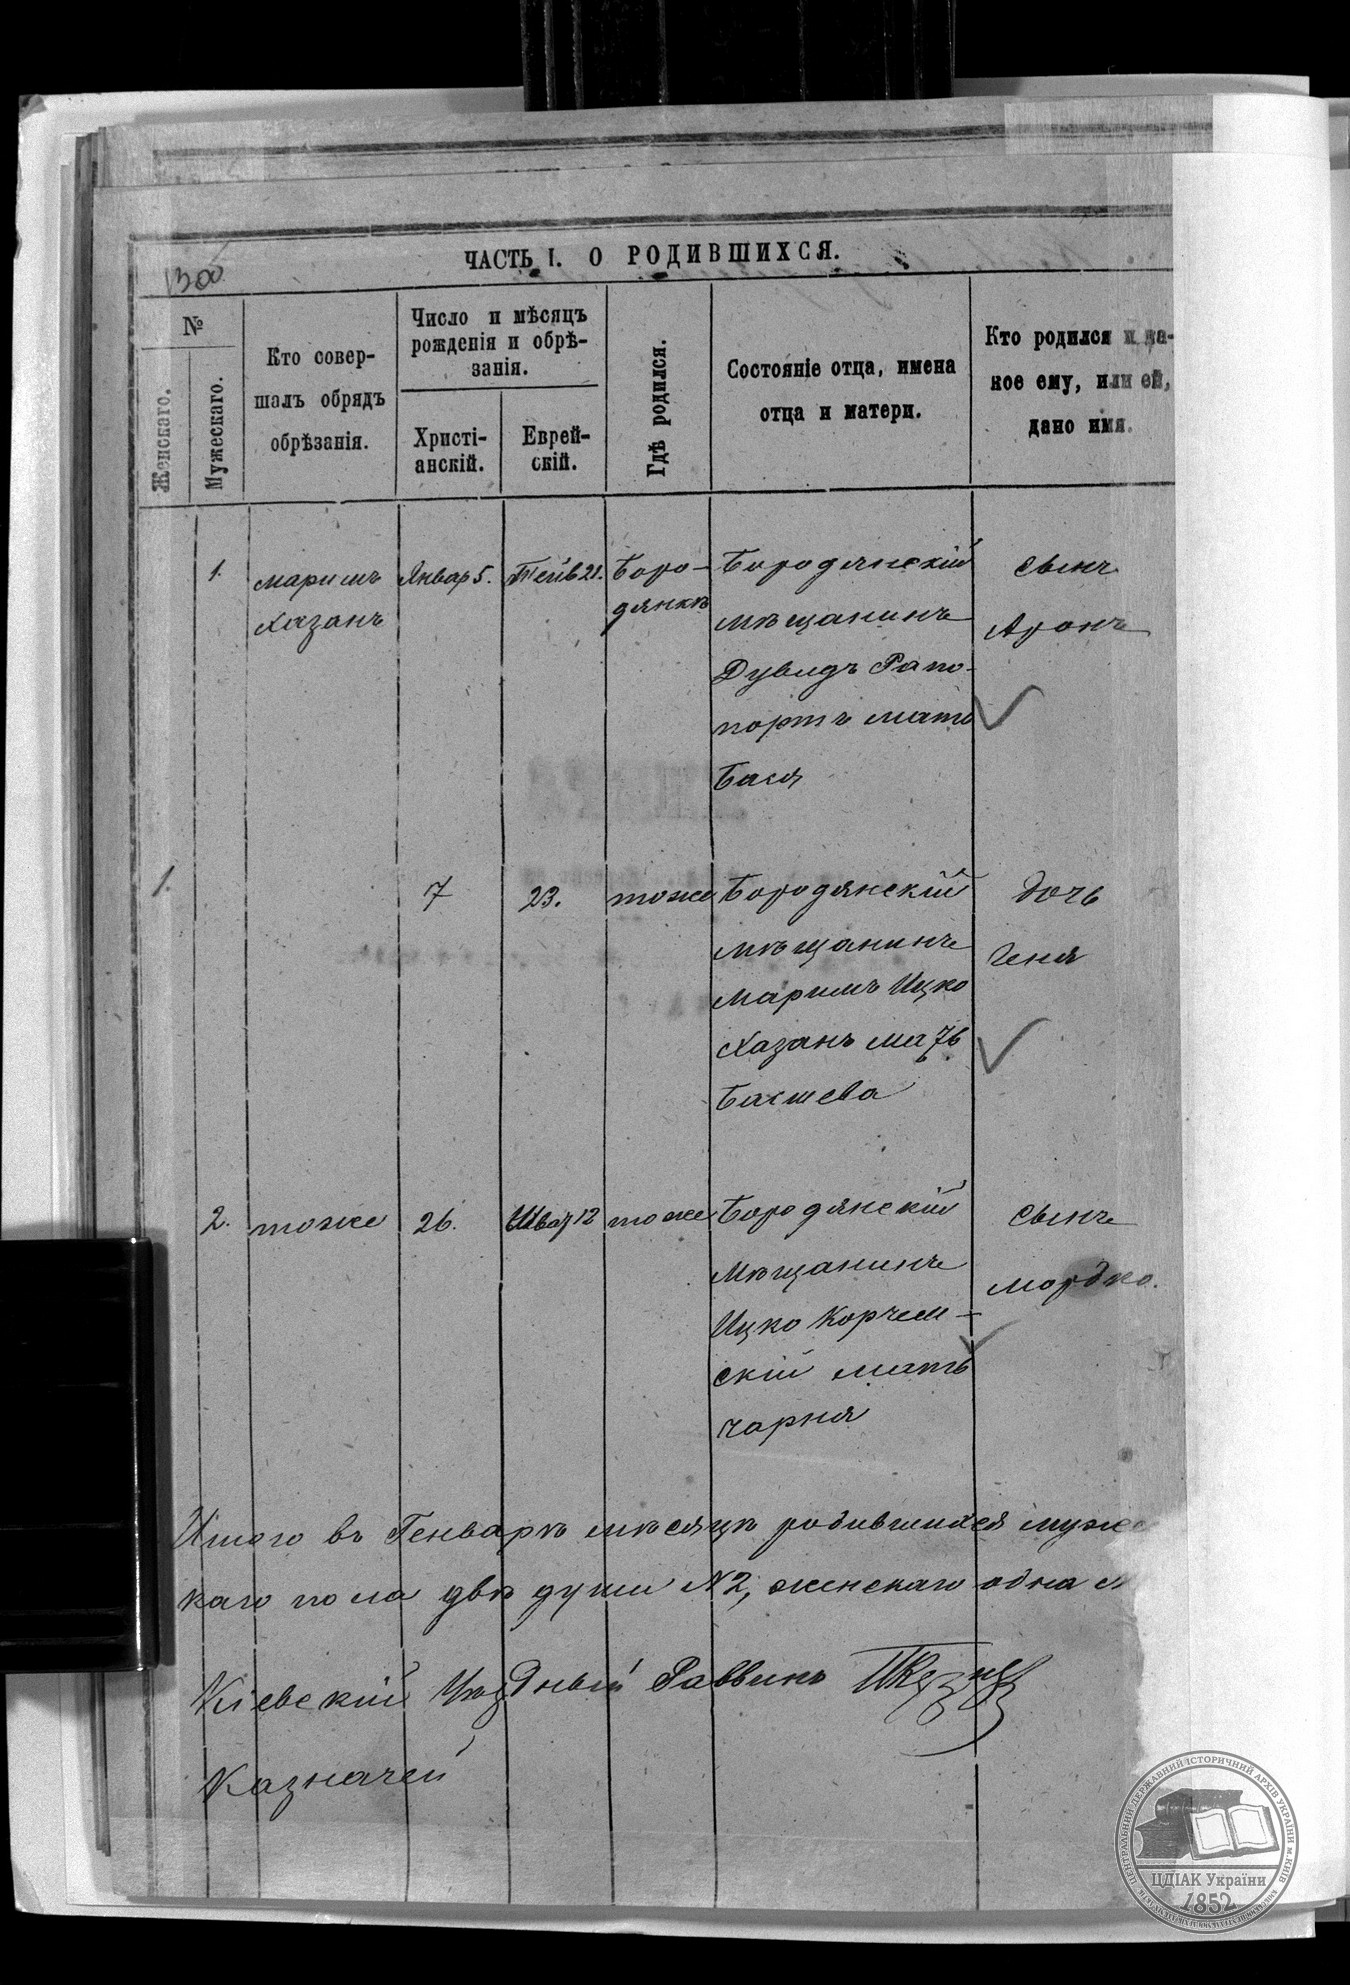 1300
ЧАСТЬ I. О РОДИВШИХСЯ.
№
Женскаго.
Мужескаго.
Кто совер-
шалъ обрядъ
обрѣзанія.
Число и мѣсяцъ
рожденія и обрѣ-
занія.
Христі-
анскій.
Еврей-
скій.
Гдѣ родился.
Состояніе отца, имена
отца и матери.
Кто родился и ка-
кое ему, или ей,
дано имя.
1.
Маримъ
Хазанъ
Январ 5.
Тейв 21.
Боро-
дянкѣ
Бородянскій
мѣщанинъ
Дувидъ Рапо-
портъ мать
Бася
сынъ
Аронъ
1.
7
23.
тоже
Бородянскій
мѣщанинъ
Маримъ Ицко
Хазанъ мать
Басшева
дочь
Геня
2.
тоже
26.
Шват 12
тоже
Бородянскій
Мѣщанинъ
Ицко Корчем-
скій мать
Чарня
сынъ
Мордко.
Итого въ Генварѣ мѣсяцѣ родившихся мужес
каго пола двѣ души №2, женскаго одна
Кіевскій Уѣздный Раввинъ
Казначей
ЦЕНТРАЛЬНИЙ ДЕРЖАВНИЙ ІСТОРИЧНИЙ АРХІВ УКРАЇНИ М. КИЇВ
ЦДІАК України
1852